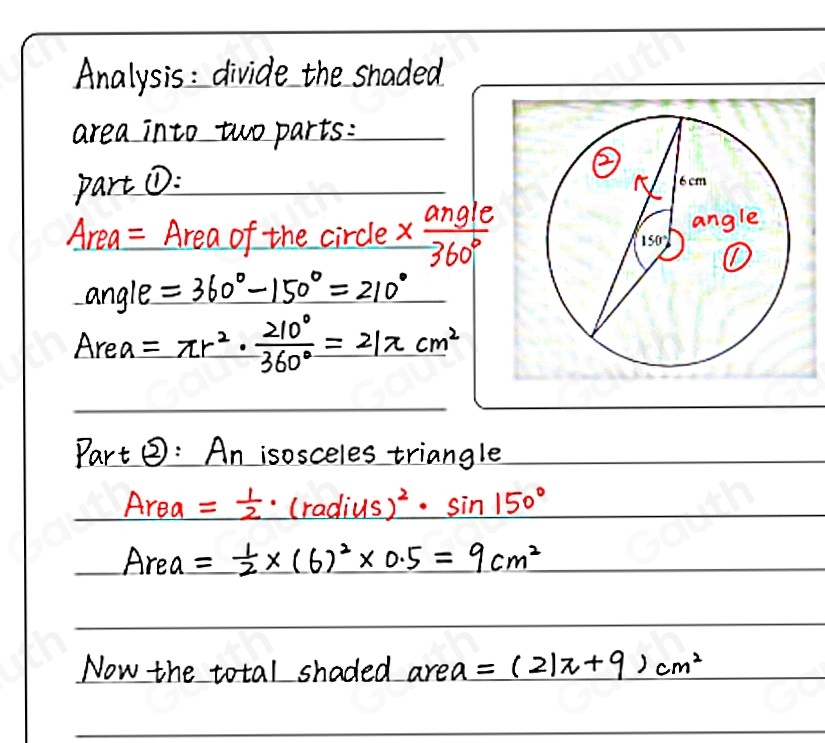 Analysis: divide the shaded
area into two parts:
part ①:
Area = Area of the circle × angle/360°
angle = 360° - 150° = 210°
Area = πr² · 210°/360° = 21π cm²
②
6 cm
angle
150°
①
Part ②: An isosceles triangle
Area = 1/2 · (radius)² · sin 150°
Area = 1/2 × (6)² × 0.5 = 9 cm²
Now the total shaded area = (21π + 9) cm²
Gauth